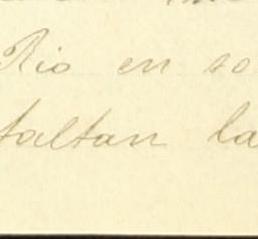 Rio en so
faltan la